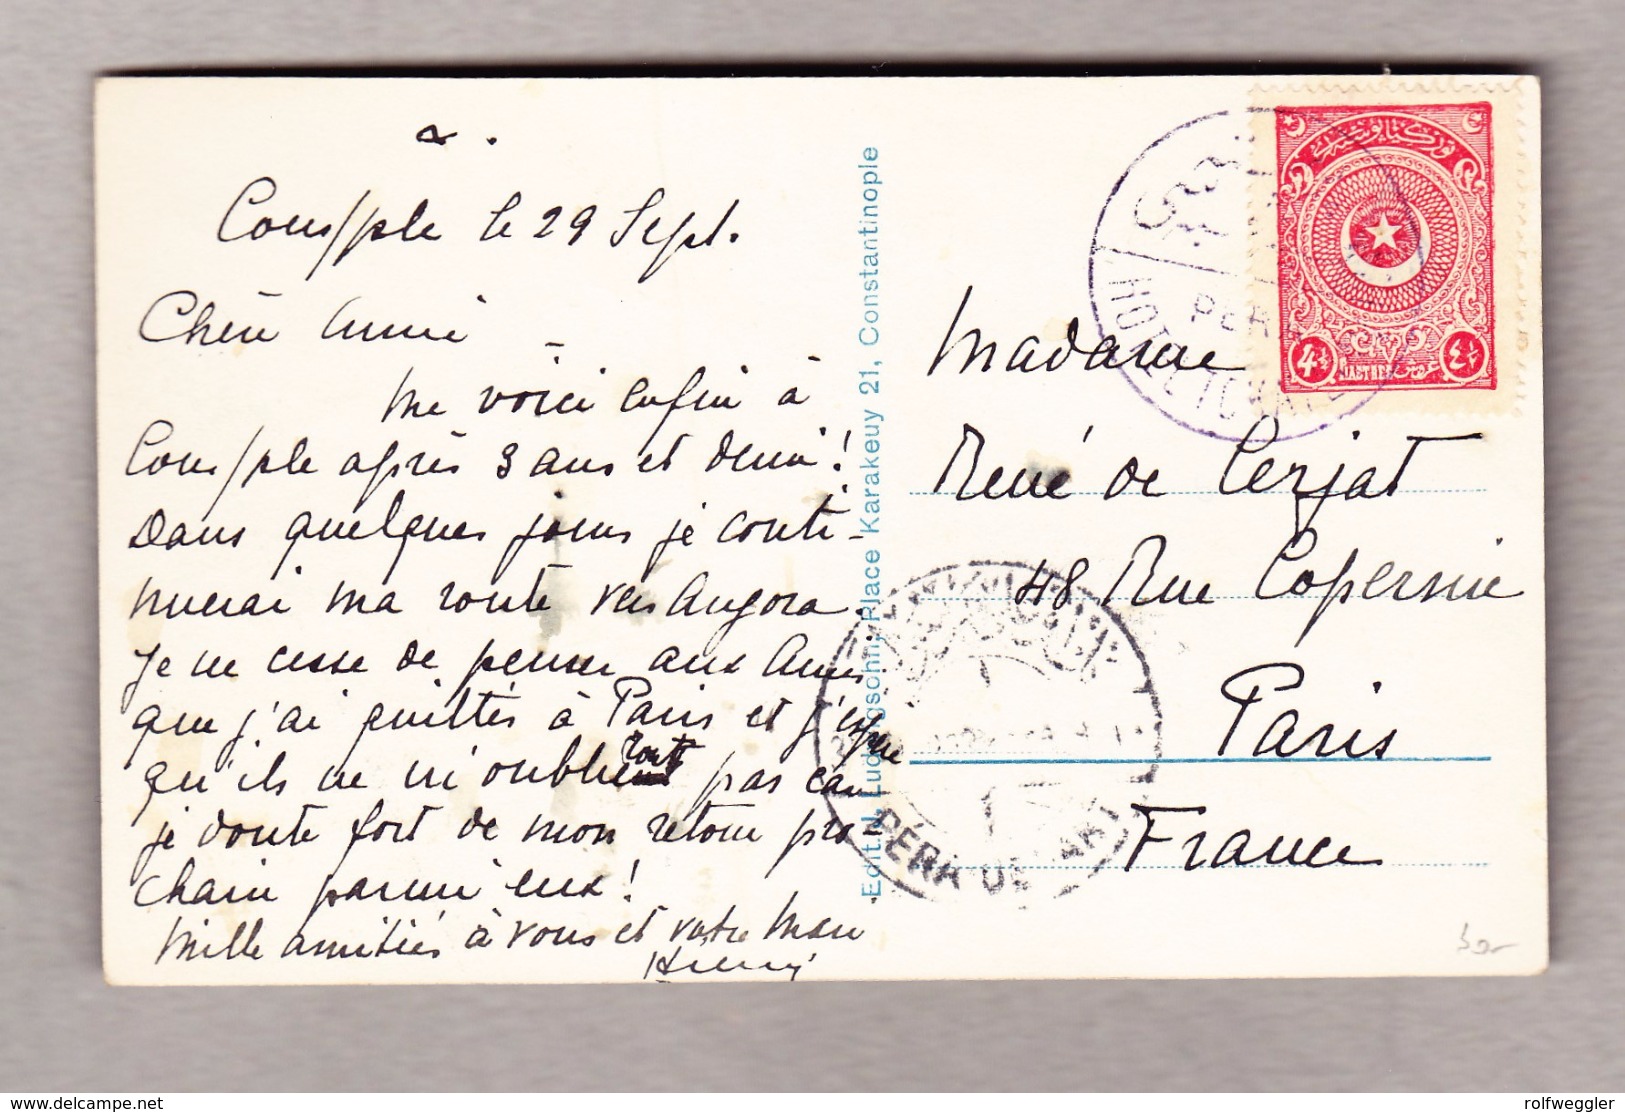 Cons/ple le 29 Sept.
Chère Amie
me voici enfin à
Cons/ple après 3 ans et demi!
Dans quelques jours je conti-
nuerai ma route vers Angora.
Je ne cesse de penser aux amis
que j'ai quittés à Paris et j'espère
qu'ils ne m'oublieront pas car
je doute fort de mon retour pro-
chain parmi eux!
Mille amitiés à vous et votre Mari
Edit. N. Ludwigsohn, Place Karakeuy 21, Constantinople
Madame
René de Cerjat
48 Rue Copernic
Paris
France
HOTEL TOKATLIAN
PERA
4½
PIASTRES
غروش
٤½
PÉRA DEPART
delcampe.net
rolfweggler